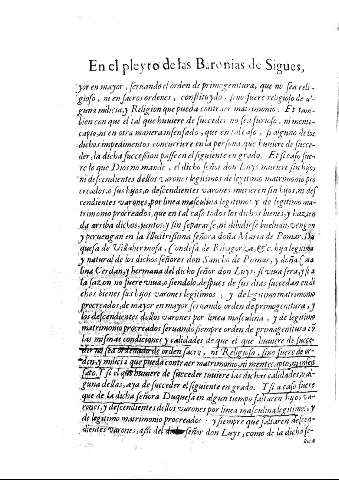 En el pleyto de las Baronias de Sigues,
yor en mayor, seruando el orden de primogenitura, que no sea reli-
gioso, ni en sacros ordenes, constituydo, sino fuere religioso de al-
guna milicia, y Religion que pueda contraer matrimonio. Et tam-
bien con que el tal que huuiere de succeder no sea furioso, ni mente
capto, ni en otra manera insensado, que en tal caso, si alguno de los
dichos impedimentos concurriere en la persona, que huuiere de succe-
der, la dicha succession passe en el siguiente en grado. Et si caso fue-
re lo que Dios no mande, el dicho señor don Luys muriere sin hijos
ni descendientes dellos varones legitimos de legitimo matrimonio pro
creados, o sus hijos, o descendientes varones murieren sin hijos, ni des
cendientes varones, por linea masculina legitimos y de legitimo ma-
trimonio procreados, que en tal caso todos los dichos bienes, y hazien
da arriba dichos, juntos, y sin separarse, ni diuidirse bueluan, vengan
y peruengan en la Illustrissima señora doña Maria de Pomar, Du-
quesa de Villahermosa, Condesa de Ribagorza, &c. hija legitima
y natural de los dichos señores don Sancho de Pomar, y doña
lina Cerdan, y hermana del dicho señor don Luys, si viua fuere, y si a
la sazon no fuere viua, o siendolo, despues de sus dias sucedan en di
chos bienes sus hijos varones legitimos, y de legitimo matrimonio
procreados, de mayor en mayor seruando orden de primogenitura, y
los descendientes dellos varones por linea masculina, y de legitimo
matrimonio procreados seruando siempre orden de primogenitura cõ
las mismas condiciones y calidades de que el que huuiere de succe-
der no sea ordenado de orden sacro, ni Religioso, sino fuere de or-
den, y milicia que pueda contraer matrimonio, ni mentecapto, ni insen
sato. Et si el que huuiere de succeder tuuiere las dichas calidades, o al-
guna dellas, aya de succeder el siguiente en grado. Et si a caso fuere
que de la dicha señora Duquesa en algun tiempo faltaren hijos va-
rones, y descendientes dellos varones por linea masculina legitimos, y
de legitimo matrimonio procreados: y siempre que faltaren descen-
dientes varones, assi del dicho señor don Luys, como de la dicha se-